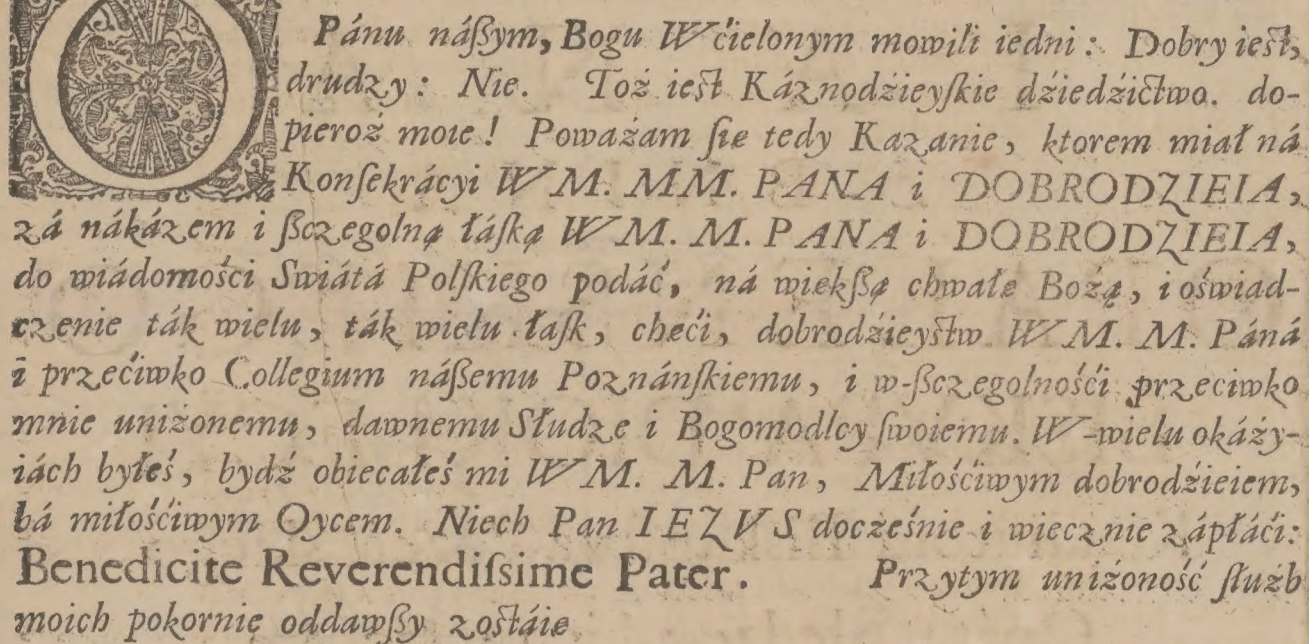 O Pánu náſzym, Bogu Wćielonym mowili iedni: Dobry ieſt,
drudzy: Nie. Toż ieſt Káznodźieyſkie dźiedźićtwo. do-
pieroż moie! Poważam ſie tedy Kazanie, ktorem miał ná
Konſekrácyi WM. MM. PANA i DOBRODZIEIA,
zá nákázem i ſzczegolną łáſką WM. M. PANA i DOBRODZIEIA,
do wiádomośći Swiátá Polſkiego podáć, ná wiekſzą chwałe Bożą, i oświad-
czenie ták wielu, ták wielu łaſk, chęći, dobrodźieyſtw WM. M. Páná
i przećiwko Collegium náſzemu Poznánſkiemu, i w-ſzczegolnośći przeciwko
mnie uniżonemu, dawnemu Słudze i Bogomodlcy ſwoiemu. W-wielu okáży-
iách byłeś, bydź obiecałeś mi WM. M. Pan, Miłośćiwym dobrodźieiem,
bá miłośćiwym Oycem. Niech Pan IEZVS docześnie i wiecznie zápłáći:
Benedicite Reverendiſsime Pater. Przytym uniżoność ſłużb
moich pokornie oddawſzy zoſtáie